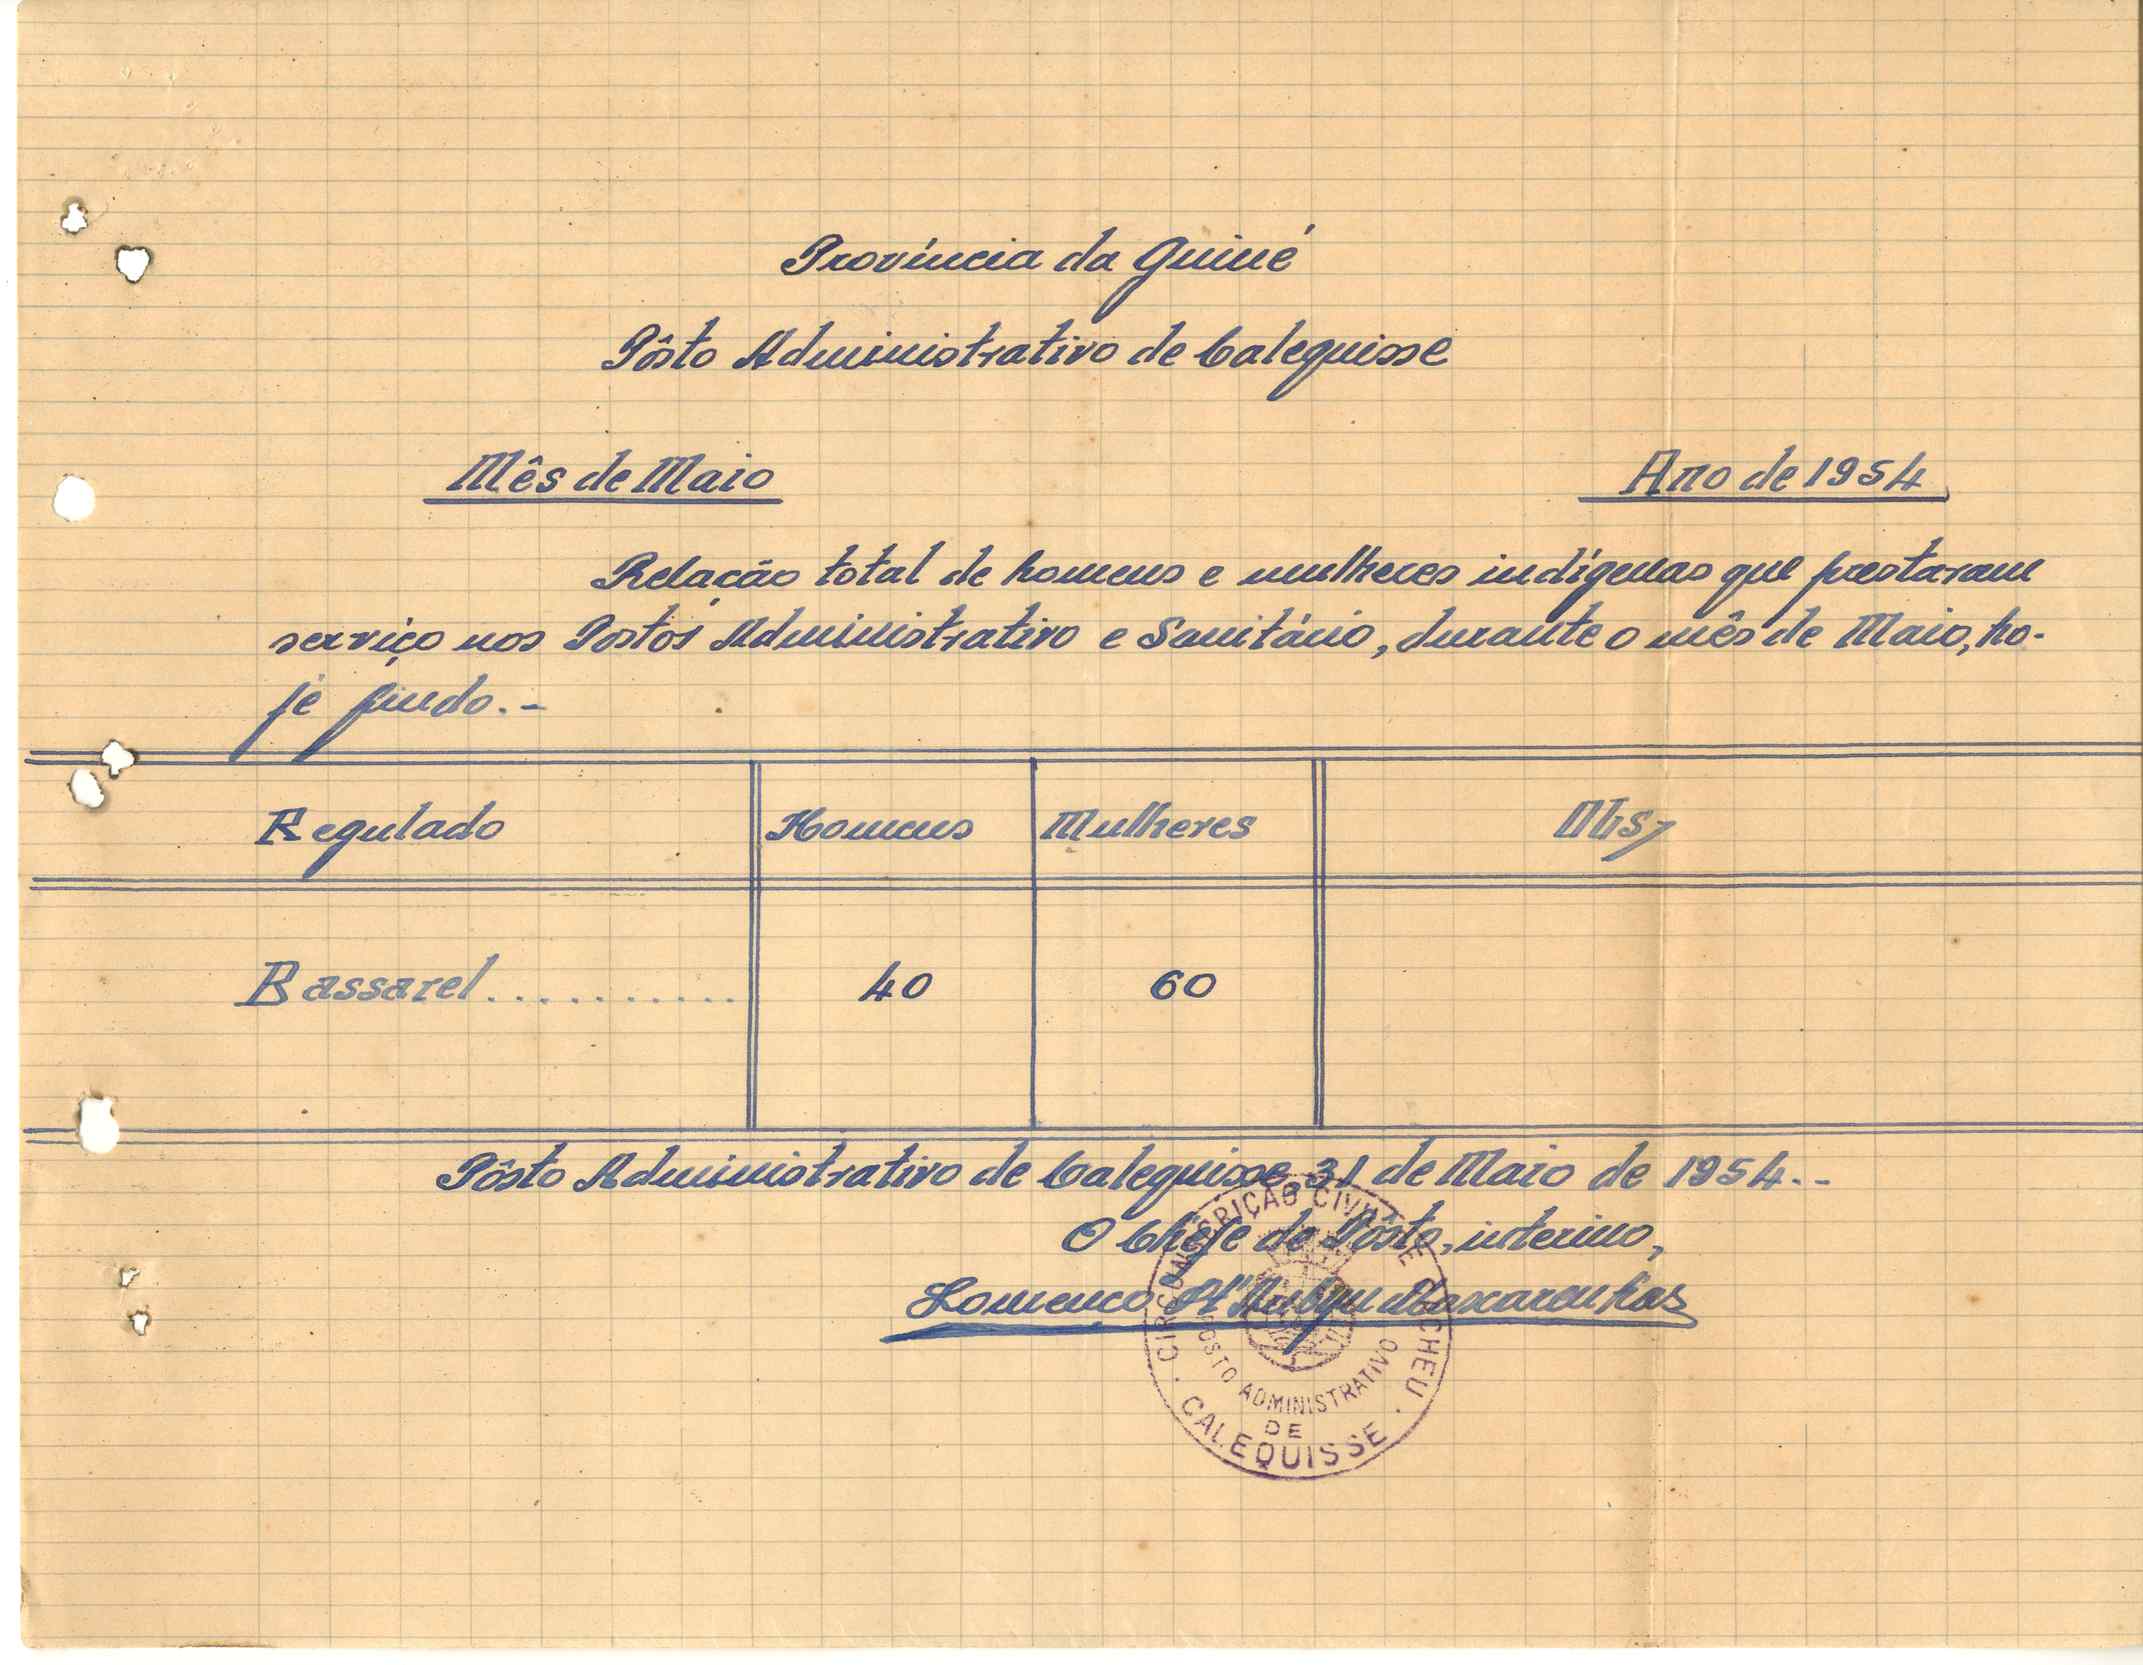 Província da Guiné
Pôsto Administrativo de Calequisse
Mês de Maio
Ano de 1954
Relação total de homens e mulheres indígenas que prestaram
serviço nos Postos Administrativo e Sanitário, durante o mês de Maio, ho-
je findo.-
Regulado Homens Mulheres Obs,
Bassarel........... 40 60
Pôsto Administrativo de Calequisse, 31 de Maio de 1954.-
O Chefe de Pôsto, interino,
Mascarenhas
CIRCUNSCRIÇÃO CIVIL DE CACHEU
POSTO ADMINISTRATIVO
DE
CALEQUISSE